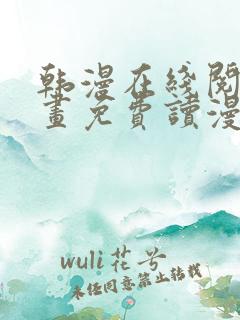 韩漫在线阅
畫免費讀漫
wuli花兮
未经同意禁止转载